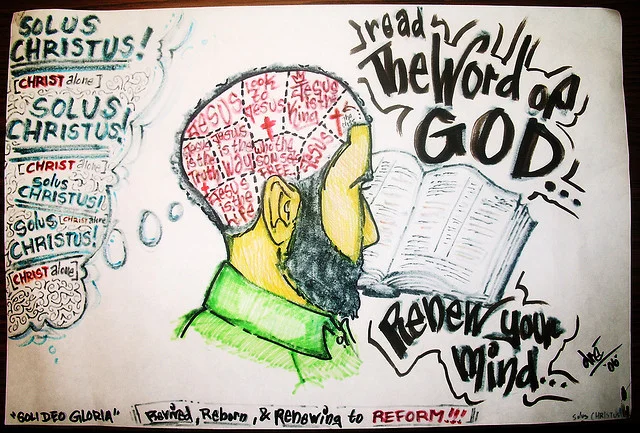 SOLUS
CHRISTUS!
[CHRIST alone]
SOLUS
CHRISTUS!
[CHRIST alone]
Solus
CHRISTUS!
[CHRIST alone]
SOLUS
CHRISTUS!
[CHRIST alone]
JESUS
Look
to
JESUS
JESUS
is the
King
JESUS
is the
Truth
JESUS
is the
WAY
who the
SON SETS
FREE
JESUS
JESUS
is the
Life
read
The Word of
GOD...
Renew your
mind...
dré
'06
"SOLI DEO GLORIA"
Revived, Reborn, & Renewing to REFORM!!!
Solus CHRISTUS